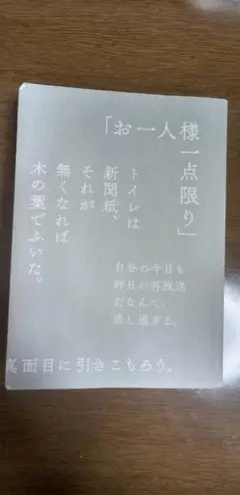 「お一人様
一点限り」
トイレは
新聞紙、
それが
無くなれば
木の葉でふいた。
自分の今日も
昨日の再放送
だなんて、
悲し過ぎる。
真面目に引きこもろう。